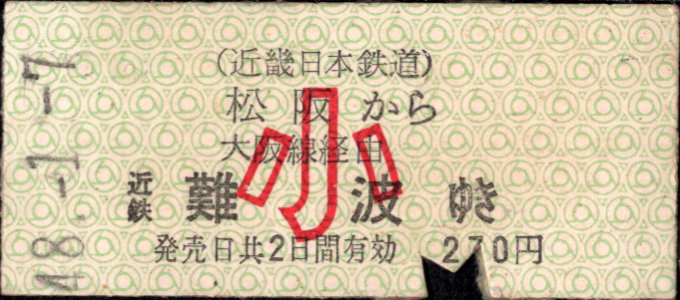 48.-1.-7
(近畿日本鉄道)
松阪から
大阪線経由
近鉄難波ゆき
小
発売日共2日間有効 270円